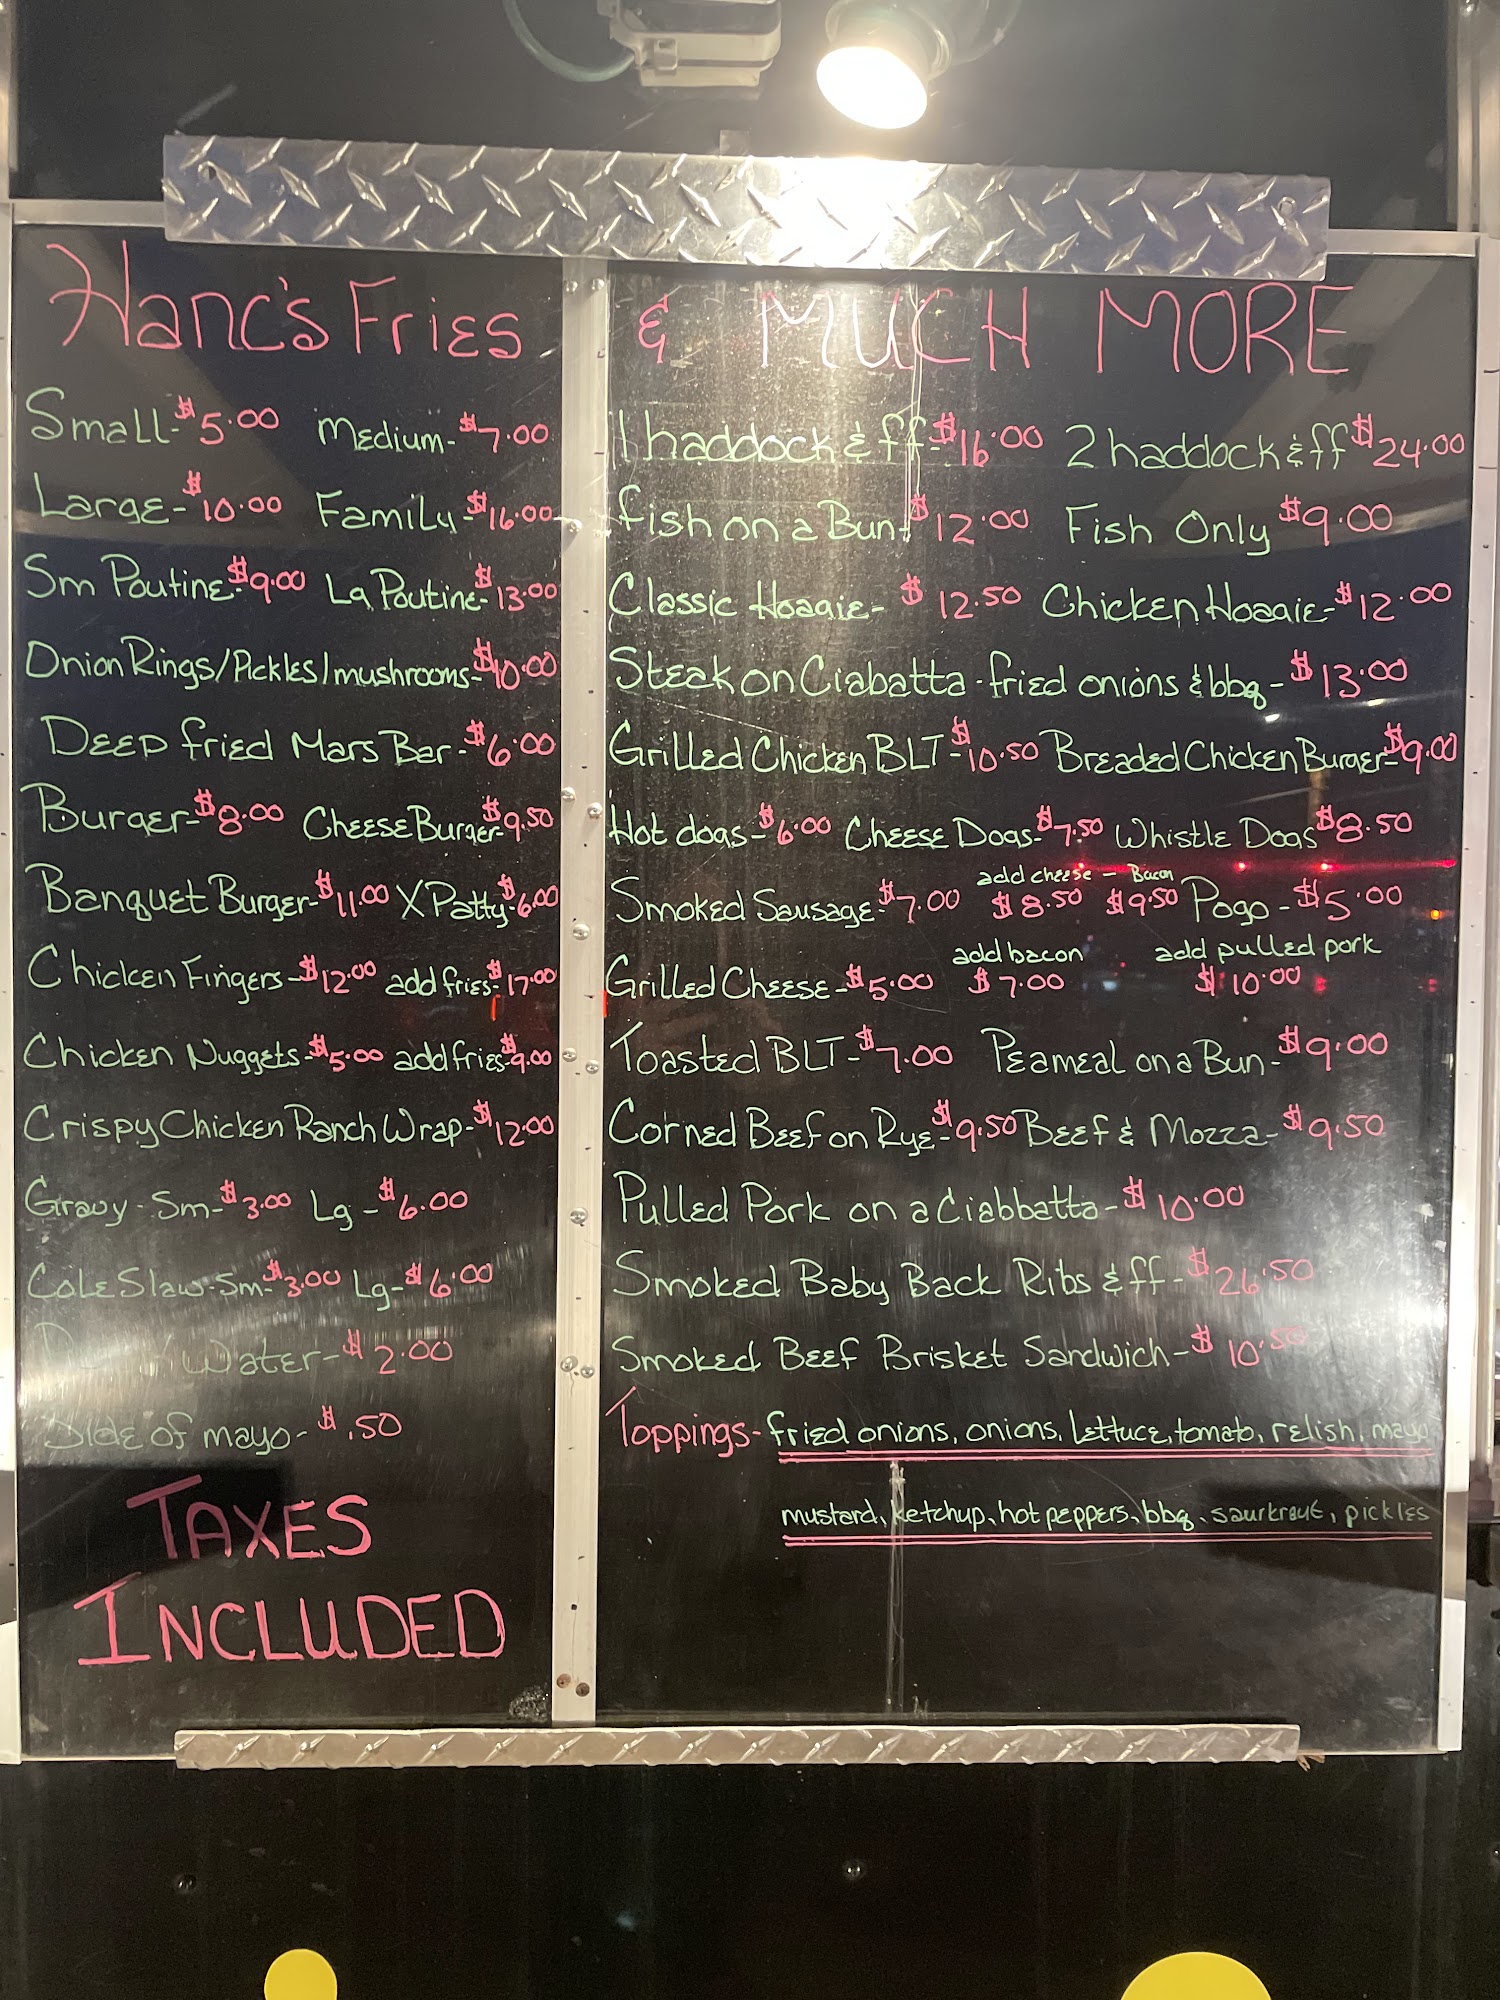 Hanc's Fries & MUCH MORE
Small- $5.00 Medium- $7.00
Large- $10.00 Family- $16.00
Sm Poutine- $9.00 La Poutine- $13.00
Onion Rings/Pickles/mushrooms- $10.00
Deep fried Mars Bar- $6.00
Burger- $8.00 Cheese Burger- $9.50
Banquet Burger- $11.00 X Patty- $6.00
Chicken Fingers- $12.00 add fries- $17.00
Chicken Nuggets- $5.00 add fries- $9.00
Crispy Chicken Ranch Wrap- $12.00
Gravy- Sm- $3.00 Lg- $6.00
Cole Slaw- Sm- $3.00 Lg- $6.00
Water- $2.00
Side of mayo- $.50
TAXES
INCLUDED
1 haddock & ff- $16.00 2 haddock & ff $24.00
fish on a Bun- $12.00 Fish Only $9.00
Classic Hoagie- $12.50 Chicken Hoagie- $12.00
Steak on Ciabatta - fried onions & bbq- $13.00
Grilled Chicken BLT- $10.50 Breaded Chicken Burger- $9.00
Hot dogs- $6.00 Cheese Dogs- $7.50 Whistle Dogs $8.50
add cheese - Bacon
Smoked Sausage- $7.00 $8.50 $9.50 Pogo- $5.00
add bacon add pulled pork
Grilled Cheese- $5.00 $7.00 $10.00
Toasted BLT- $7.00 Peameal on a Bun- $9.00
Corned Beef on Rye- $9.50 Beef & Mozza- $9.50
Pulled Pork on a Ciabbatta- $10.00
Smoked Baby Back Ribs & ff- $26.50
Smoked Beef Brisket Sandwich- $10.50
Toppings- fried onions, onions, Lettuce, tomato, relish, mayo
mustard, ketchup, hot peppers, bbq, saurkraut, pickles